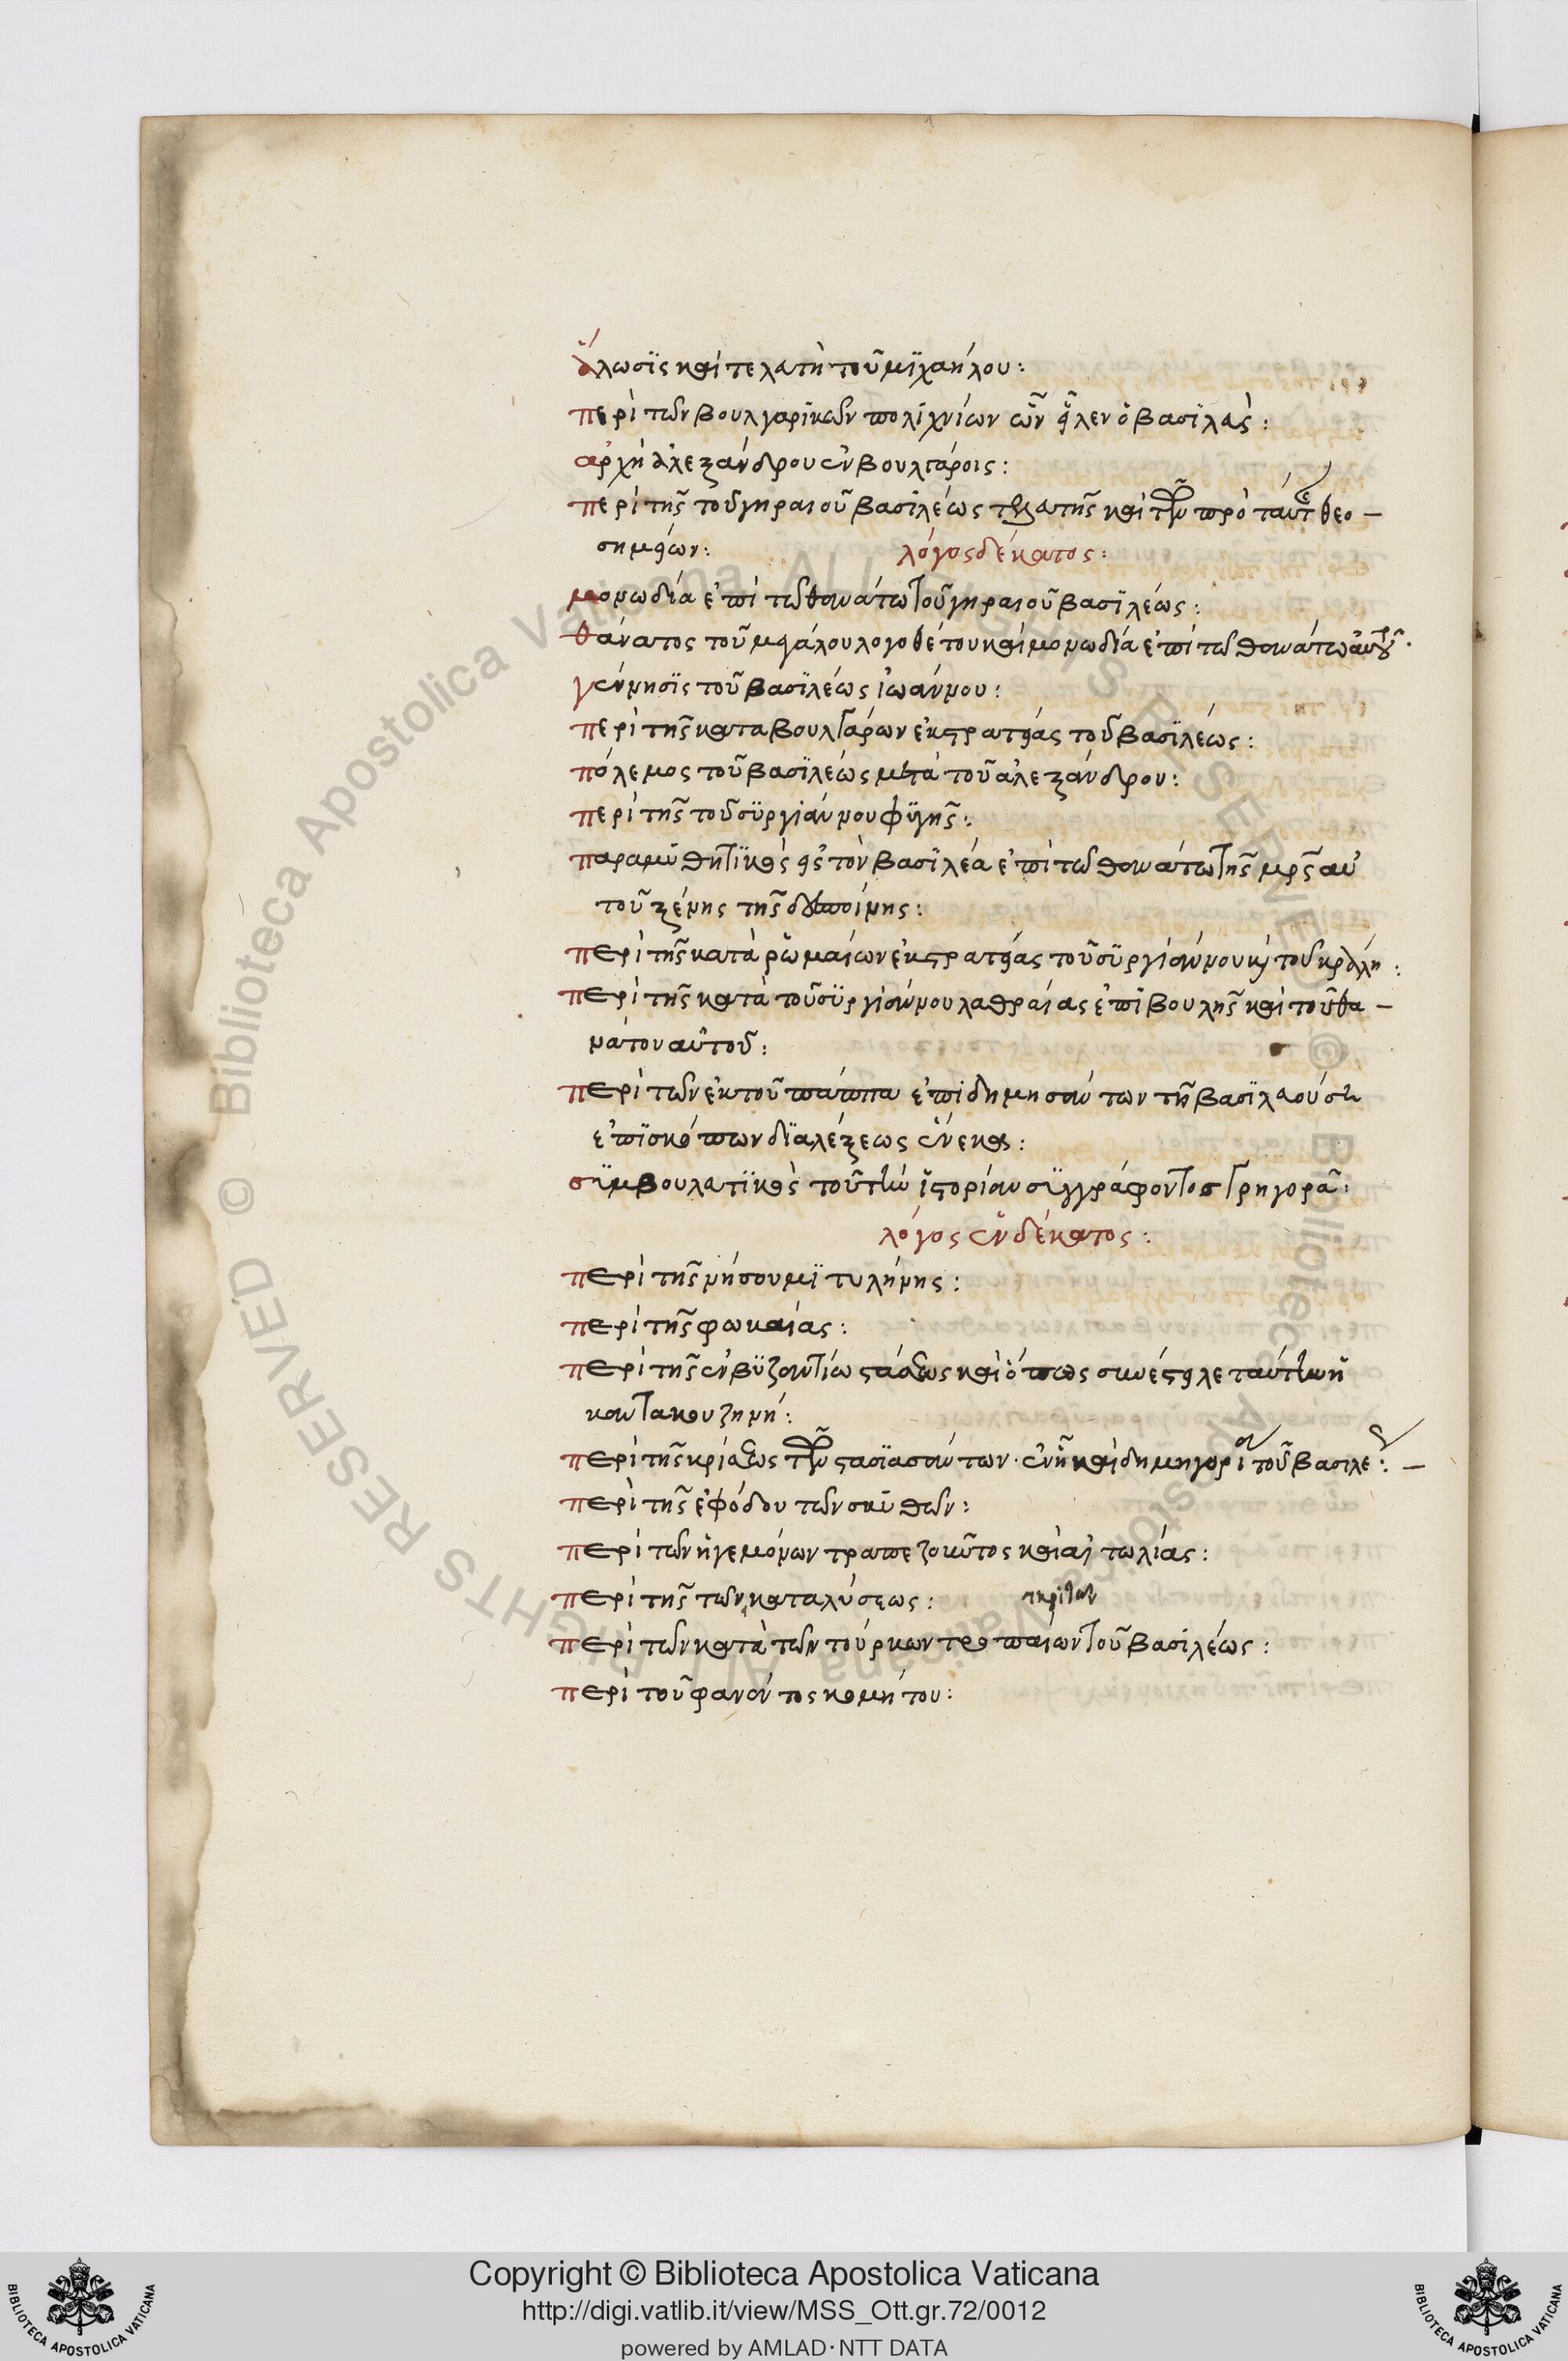 ἅλωσϊς καὶ τελευτὴ τοῦ μϊχαήλου:
περὶ τῶν βουλγαρϊκῶν πολϊχνίων ὧν εἷλεν ὁ βασϊλεὺς:
ἀρχὴ ἀλεξάνδρου ἐν βουλγάροις:
περὶ τῆς τοῦ γηραιοῦ βασϊλέως τελευτῆς καὶ τῶν πρὸ ταύτης θεο-
σημειῶν: λόγος δέκατος:
μονωδία ἐπὶ τῶ θανάτω τοῦ γηραιοῦ βασϊλέως:
θάνατος τοῦ μεγάλου λογοθέτου καὶ μονωδία ἐπὶ τῶ θανάτω αὐτοῦ.
γέννησϊς τοῦ βασϊλέως ἰωάννου:
περὶ τῆς κατα βουλγάρων ἐκστρατείας τοῦ βασϊλέως:
πόλεμος τοῦ βασϊλέως μετὰ τοῦ ἀλεξάνδρου:
περὶ τῆς τοῦ συργιάννου φυγῆς:
παραμυθητϊκὸς εἰς τὸν βασϊλέα ἐπὶ τῶ θανάτω τῆς μρς αὐ
τοῦ ξένης τῆς δεσποίνης:
περὶ τῆς κατὰ ῥωμαίων ἐκστρατείας τοῦ συργιάννου καὶ τοῦ κράλη:
περὶ τῆς κατὰ τοῦ συργιάννου λαθραίας ἐπϊβουλῆς καὶ τοῦ θα-
νάτου αὐτοῦ:
περὶ τῶν ἐκ τοῦ πάππα ἐπιδημησάντων τῆ βασϊλευούση
ἐπϊσκόπων διαλέξεως ἕνεκα:
συμβουλευτϊκὸς τοῦ τὴν ἱστορίαν συγγράφοντος γρηγορᾶ:
λόγος ἑνδέκατος:
περὶ τῆς νήσου μϊτυλήνης:
περὶ τῆς φωκαίας:
περὶ τῆς ἐν βυζαντίω στάσεως καὶ ὅπως συνέστειλε ταύτην ἡ
καντακουζηνή:
περὶ τῆς κρίσεως τῶν στασϊασάντων· ἐν ἧ καὶ δημηγορία τοῦ βασιλέως: -
περὶ τῆς ἐφόδου τῶν σκυθῶν:
περὶ τῶν ἡγεμόνων τραπεζοῦντος καὶ αἰτωλίας:
περὶ τῆς τῶν καταλύσεως: σκυθῶν
περὶ τῶν κατὰ τῶν τούρκων τροπαίων τοῦ βασϊλέως:
περὶ τοῦ φανέντος κομήτου:
Copyright © Biblioteca Apostolica Vaticana
http://digi.vatlib.it/view/MSS_Ott.gr.72/0012
powered by AMLAD·NTT DATA